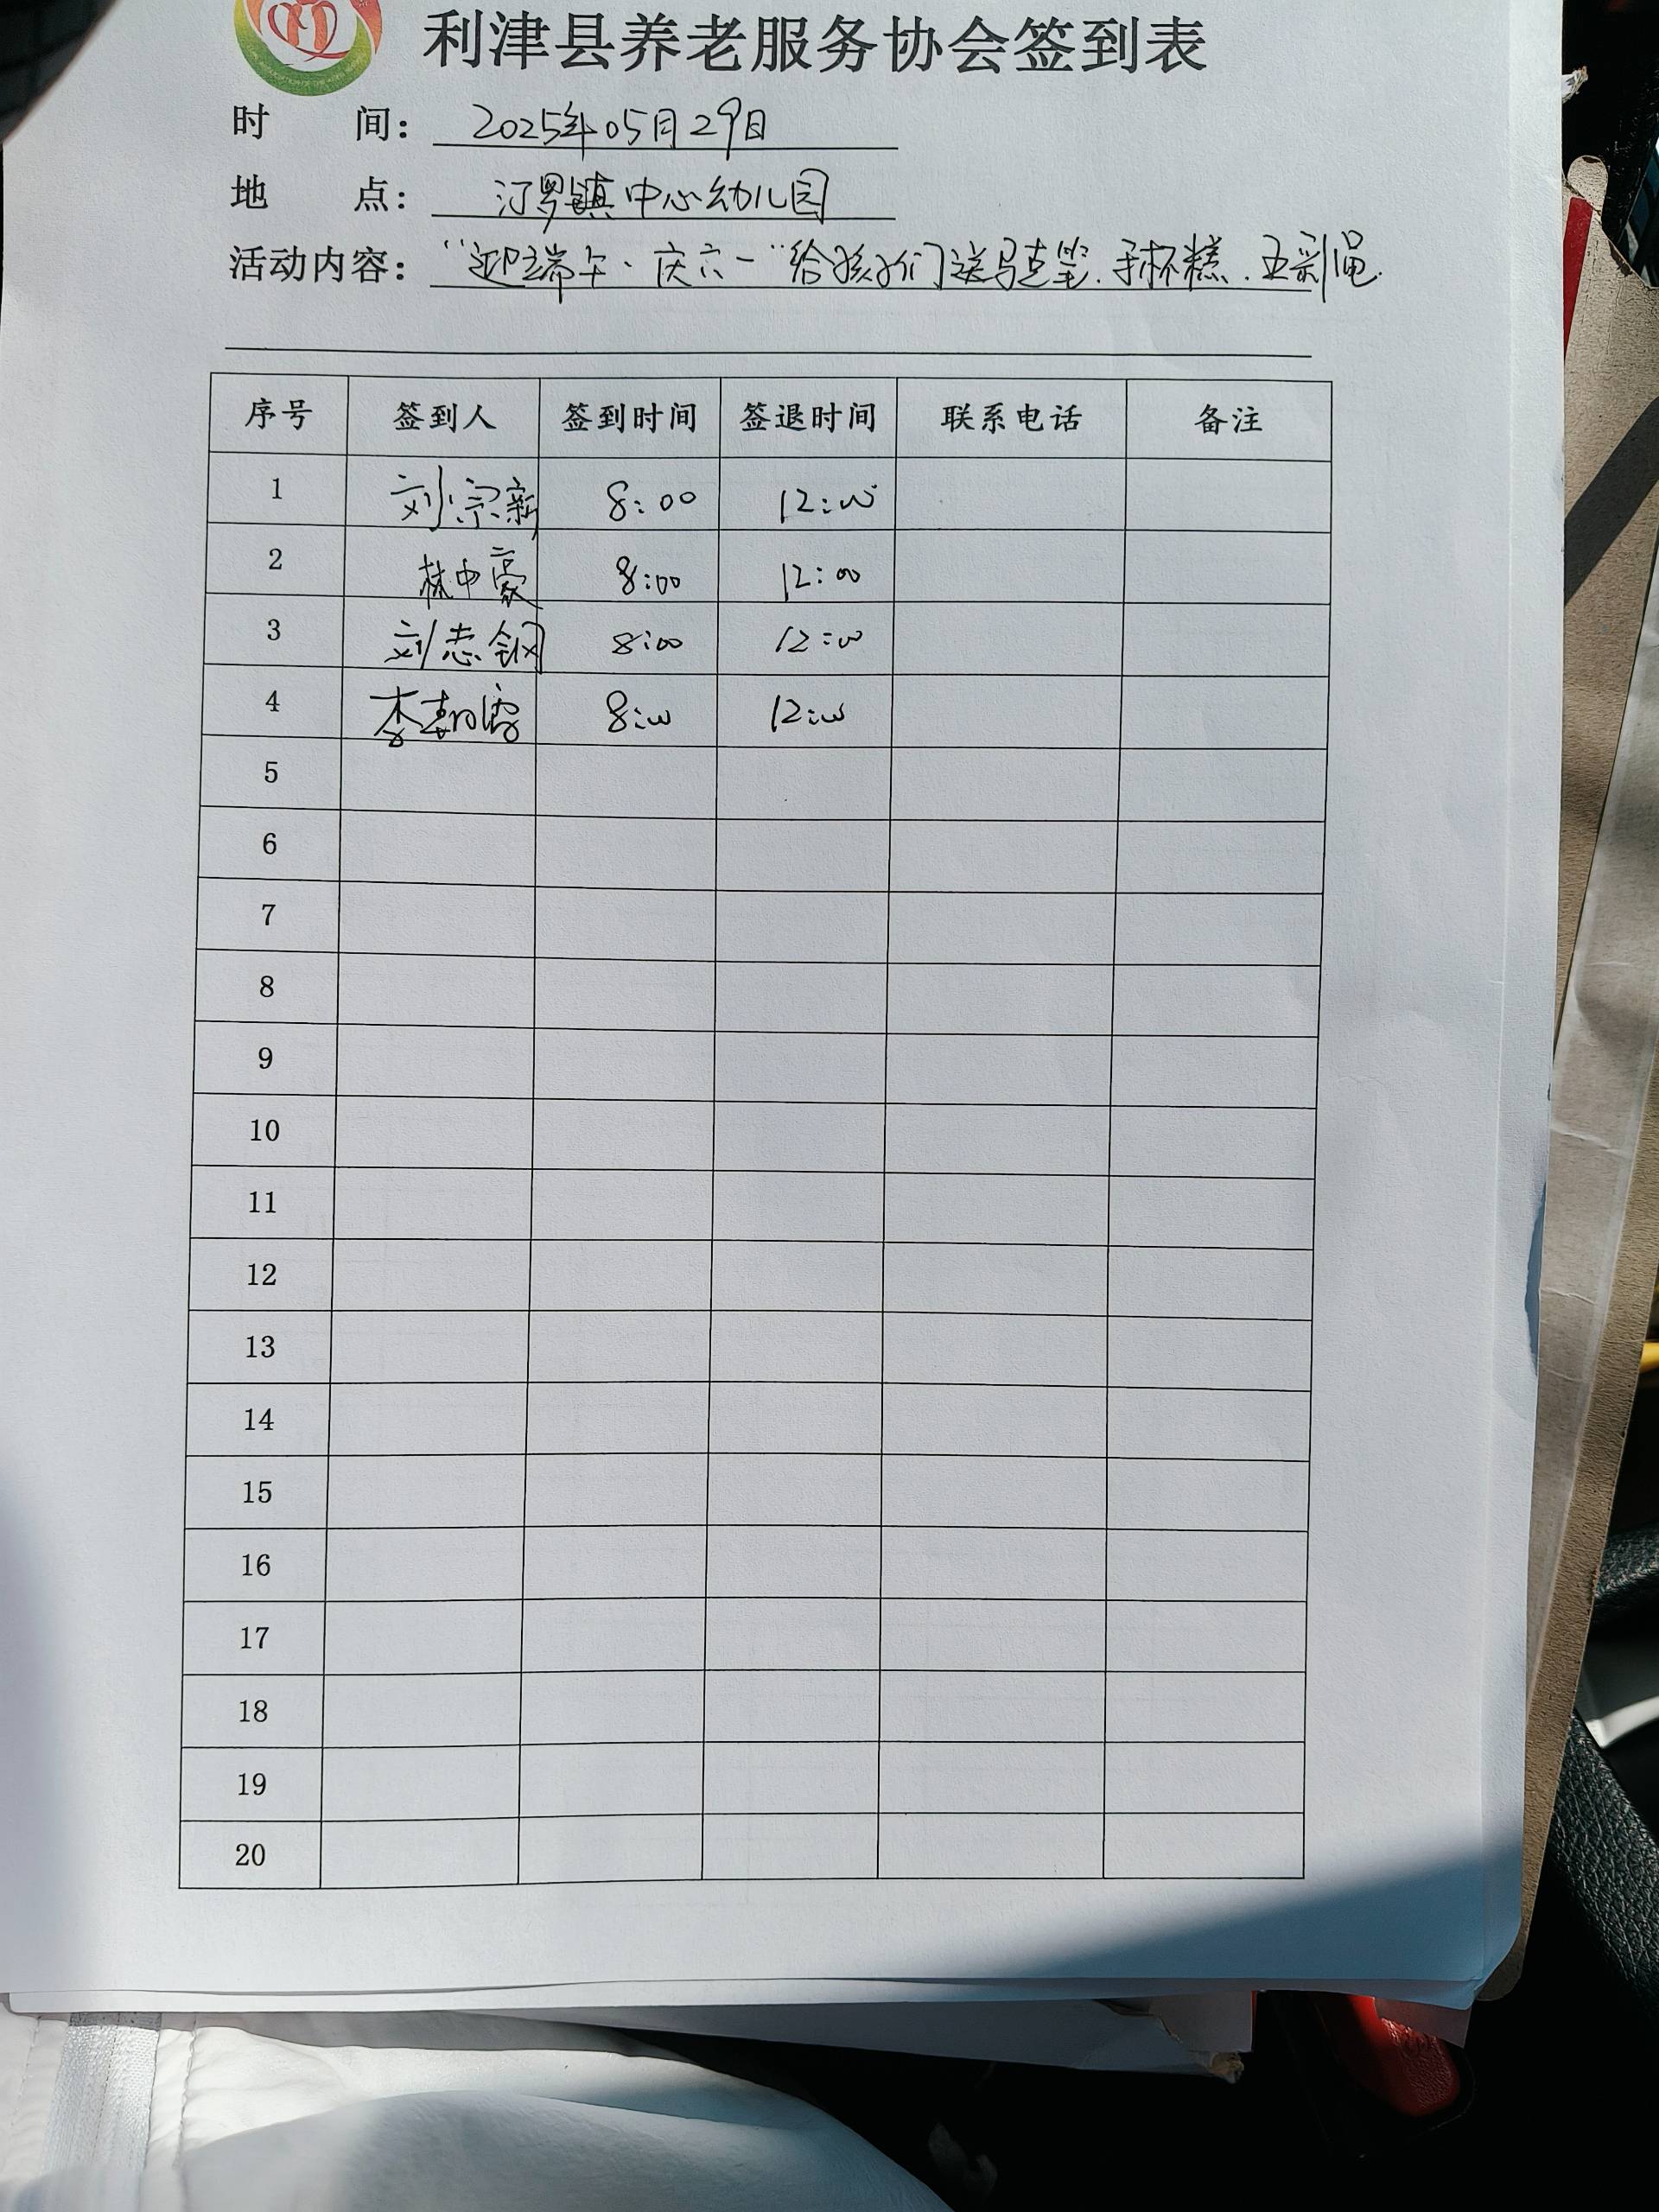 利津县养老服务协会签到表
时 间： 2025年05月29日
地 点： 汀罗镇中心幼儿园
活动内容： “迎端午·庆六一”给孩子们送马克笔、手杯糕、五彩绳.
序号 签到人 签到时间 签退时间 联系电话 备注
1 刘宗新 8:00 12:00
2 林中豪 8:00 12:00
3 刘志钢 8:00 12:00
4 8:00 12:00
5
6
7
8
9
10
11
12
13
14
15
16
17
18
19
20